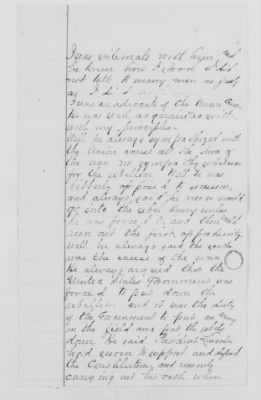 I was intimate with him, and
he knew how I stood I did
not talk to many men as freely
as I did
I was an advocate of the Union cause
he was well acquainted with
with my principles
Well he always sympathized with
the Union cause all the time of
the war no sympathy whatever
for the rebellion. Well he was
bitterly opposed to secession,
and always said he never would
go into the rebel Army unless
he was forced to, and then would
run out the first opportunity
Well he always said the south
was the cause of the war
He always argued that the
United States Government was
forced to put down the
rebellion and it was the duty
of the Government to put an army
in the field and put the rebels
down, he said President Lincoln
had sworn to support and defend
the Constitution, and was only
carrying out his oath when